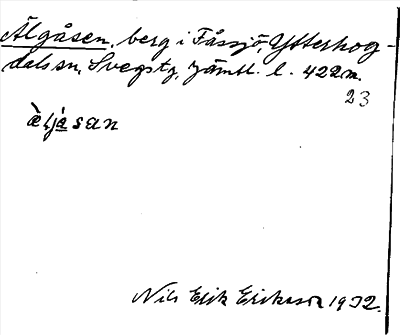 Älgåsen, berg i Fåssjö, Ytterhog-
dals sn, Svegs tg, Jämtl. l. 422 m.
23
æ̀ljåsan
Nils Erik Eriksson 1932.